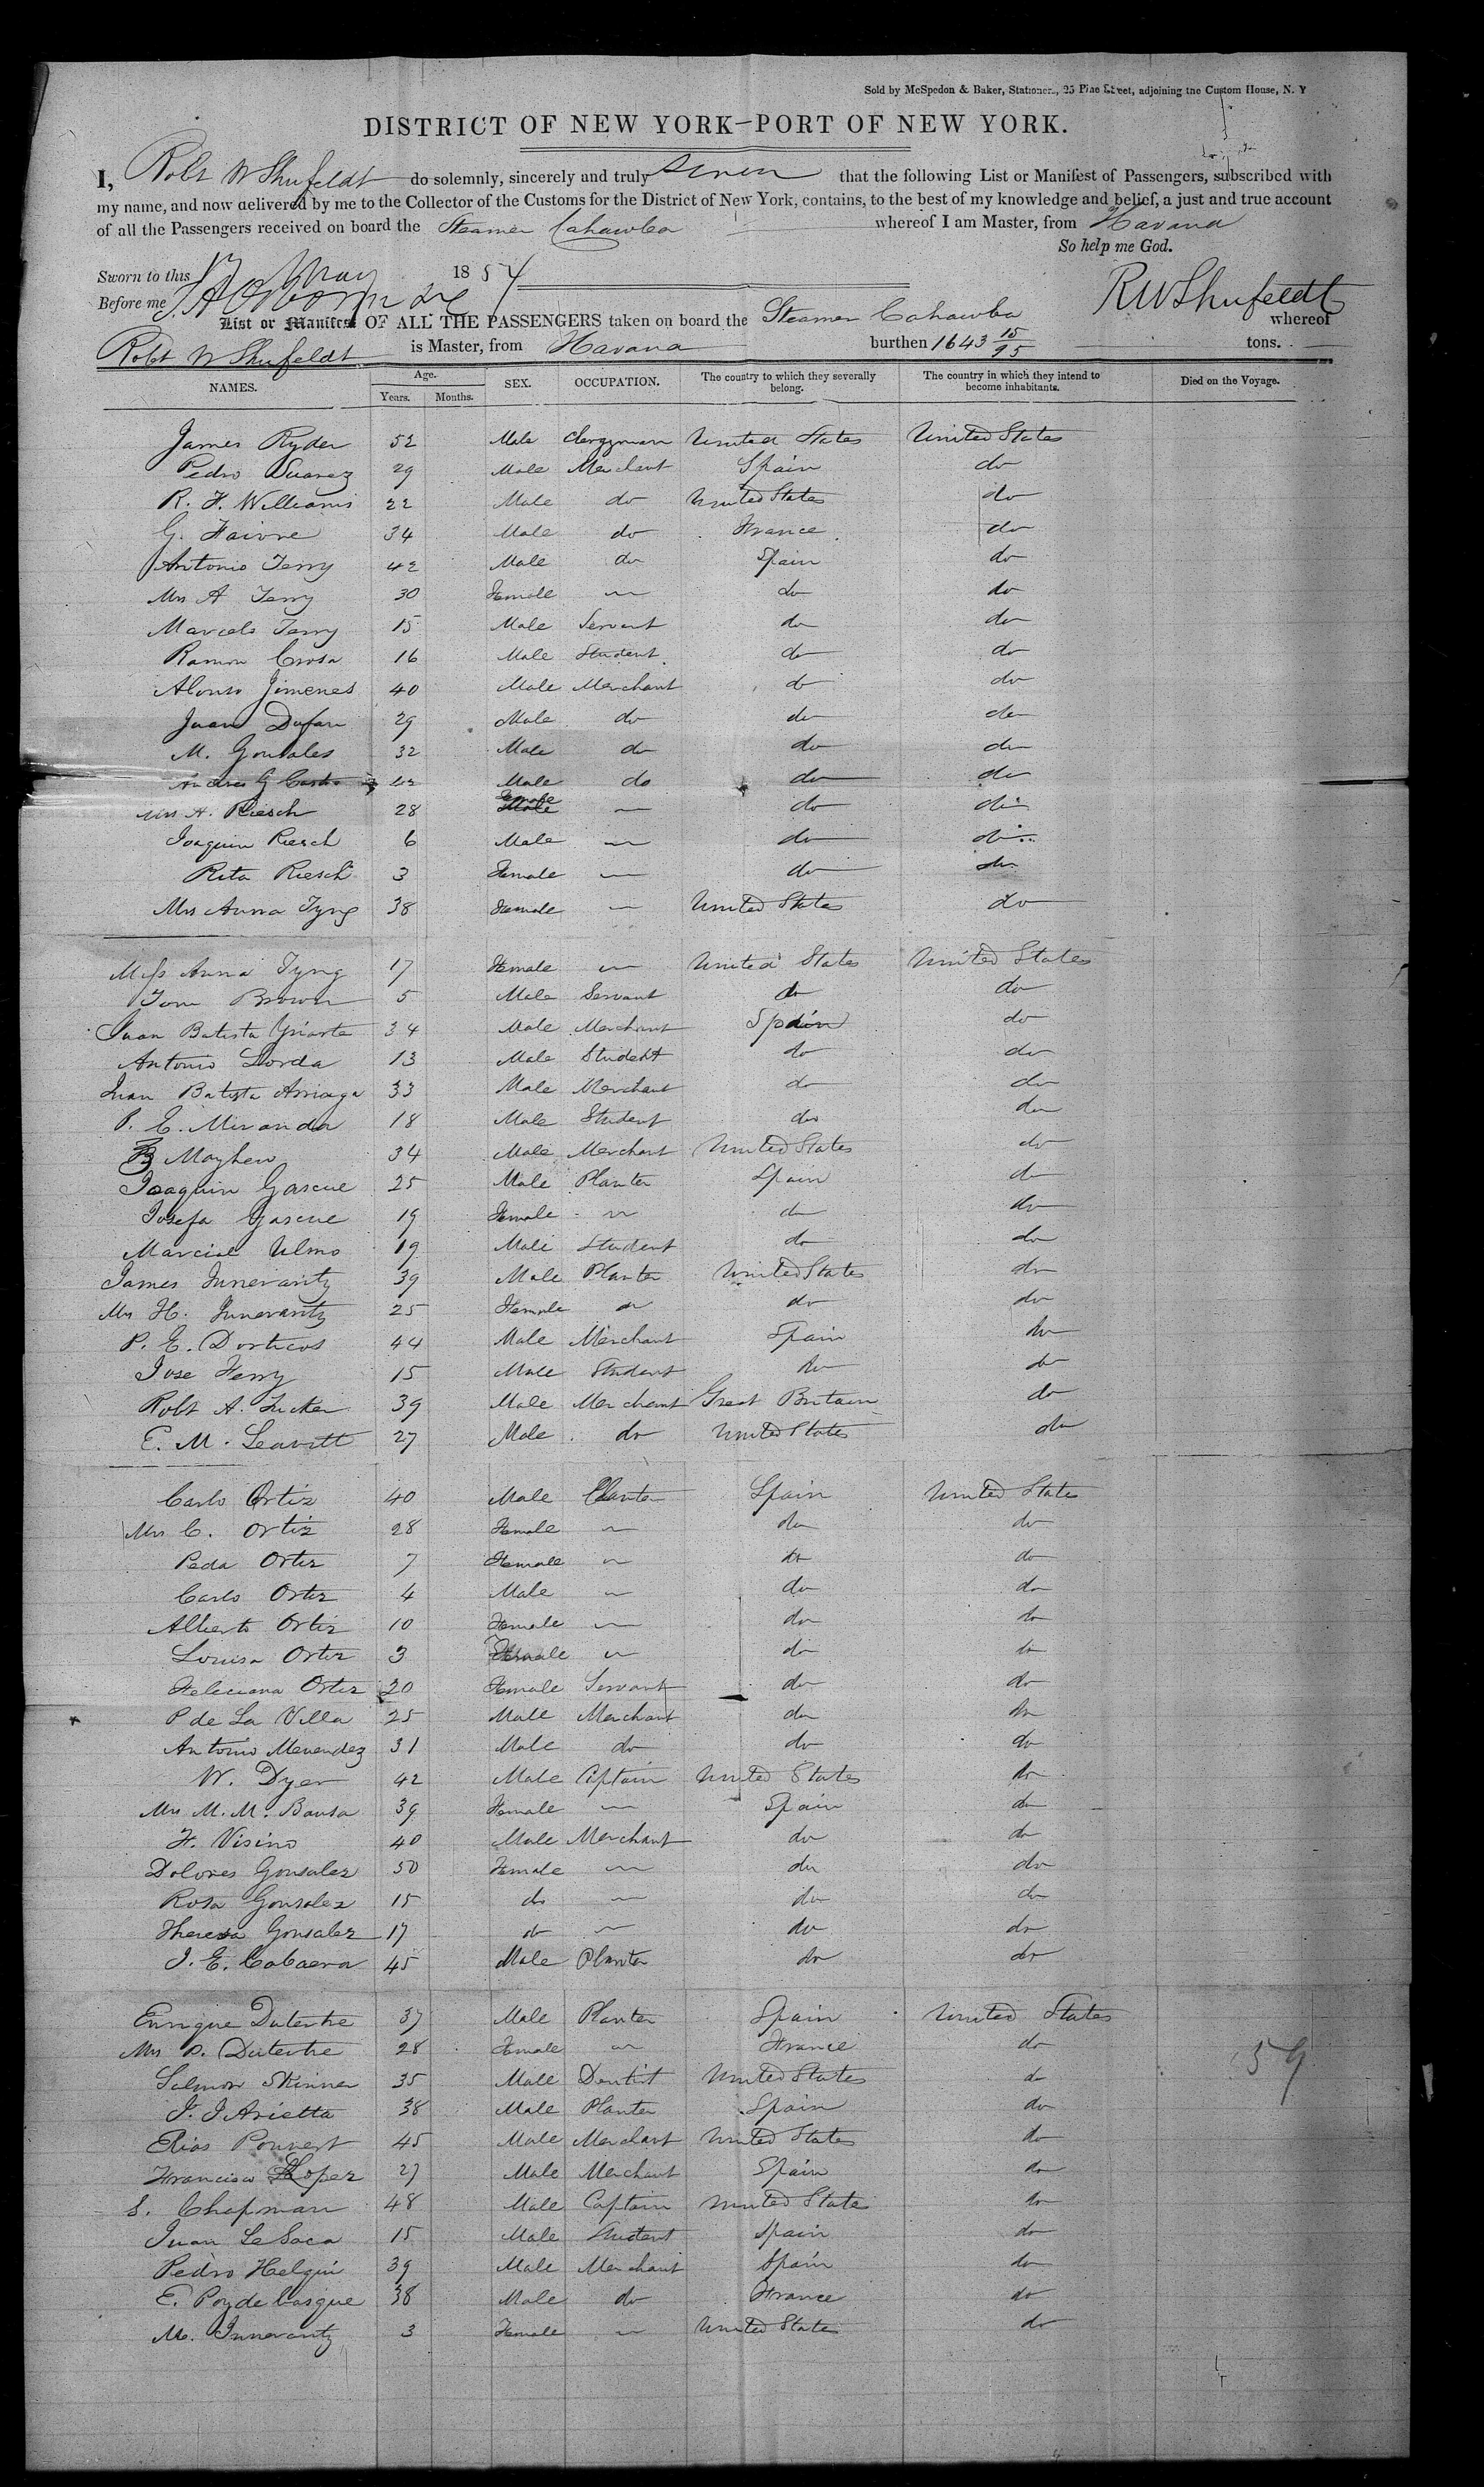 Sold by McSpedon & Baker, Stationers, 25 Pine Street, adjoining the Custom House, N. Y
DISTRICT OF NEW YORK—PORT OF NEW YORK.
I, Robt W Shufeldt do solemnly, sincerely and truly swear that the following List or Manifest of Passengers, subscribed with
my name, and now delivered by me to the Collector of the Customs for the District of New York, contains, to the best of my knowledge and belief, a just and true account
of all the Passengers received on board the Steamer Cahawba whereof I am Master, from Havana
So help me God.
Sworn to this 17 May 1854
Before me RWShufeldt
List or Manifest OF ALL THE PASSENGERS taken on board the Steamer Cahawba whereof
Robt W Shufeldt is Master, from Havana burthen 1643 15/95 tons.
NAMES. Age. Years. Months. SEX. OCCUPATION. The country to which they severally belong. The country in which they intend to become inhabitants. Died on the Voyage.
James Ryder 52 Male Clergyman United States United States
Pedro Suarez 29 Male Merchant Spain do
R. F. Williams 22 Male do United States do
G. Faivre 34 Male do France do
Antonio Terry 42 Male do Spain do
Mrs A Terry 30 Female " do do
Marcelo Terry 15 Male Servant do do
Ramon Crosa 16 Male Student do do
Alonso Jimenes 40 Male Merchant do do
Juan Dufau 29 Male do do do
M. Gonzales 32 Male do do do
Andres G Castro 42 Male do do do
Mrs A. Riesch 28 Female — do do
Joaquin Riesch 6 Male — do do
Rita Riesch 3 Female — do do
Mrs Anna Tyng 38 Female — United States do
Miss Anna Tyng 17 Female " United States United States
Tom Brown 5 Male Servant do do
Juan Batista Yriarte 34 Male Merchant Spain do
Antonio Lorda 13 Male Student do do
Juan Batista Arriaga 33 Male Merchant do do
P. E. Miranda 18 Male Student do do
B Mayhew 34 Male Merchant United States do
Joaquin Gascue 25 Male Planter Spain do
Josefa Gascue 19 Female " do do
Marcial Ulmo 19 Male Student do do
James Innerarity 39 Male Planter United States do
Mrs H. Innerarity 25 Female " do do
P. E. Dorticos 44 Male Merchant Spain do
Jose Ferry 15 Male Student do do
Robt A. Tucker 39 Male Merchant Great Britain do
E. M. Leavitt 27 Male do United States do
Carlo Ortiz 40 Male Planter Spain United States
Mrs C. Ortiz 28 Female " do do
Peda Ortiz 7 Female " do do
Carlo Ortiz 4 Male " do do
Alberto Ortiz 10 Female " do do
Louisa Ortiz 3 Female " do do
Feleciana Ortiz 20 Female Servant do do
P de La Villa 25 Male Merchant do do
Antonio Menendez 31 Male do do do
W. Dyer 42 Male Captain United States do
Mrs M. M. Bausa 39 Female — Spain do
F. Visino 40 Male Merchant do do
Dolores Gonsalez 50 Female — do do
Rosa Gonsalez 15 do — do do
Theresa Gonsalez 17 do — do do
J. E. Cabaera 45 Male Planter do do
Enrique Dutertre 37 Male Planter Spain United States
Mrs P. Dutertre 28 Female " France do
Salmon Skinner 35 Male Dentist United States do
J. J Arietta 38 Male Planter Spain do
Elias Ponvert 45 Male Merchant United States do
Francisco Lopez 27 Male Merchant Spain do
S. Chapman 48 Male Captain United States do
Juan LeSaca 15 Male Student Spain do
Pedro Helguin 39 Male Merchant Spain do
E. Poydebasque 38 Male do France do
M. Innerarity 3 Female — United States do
59